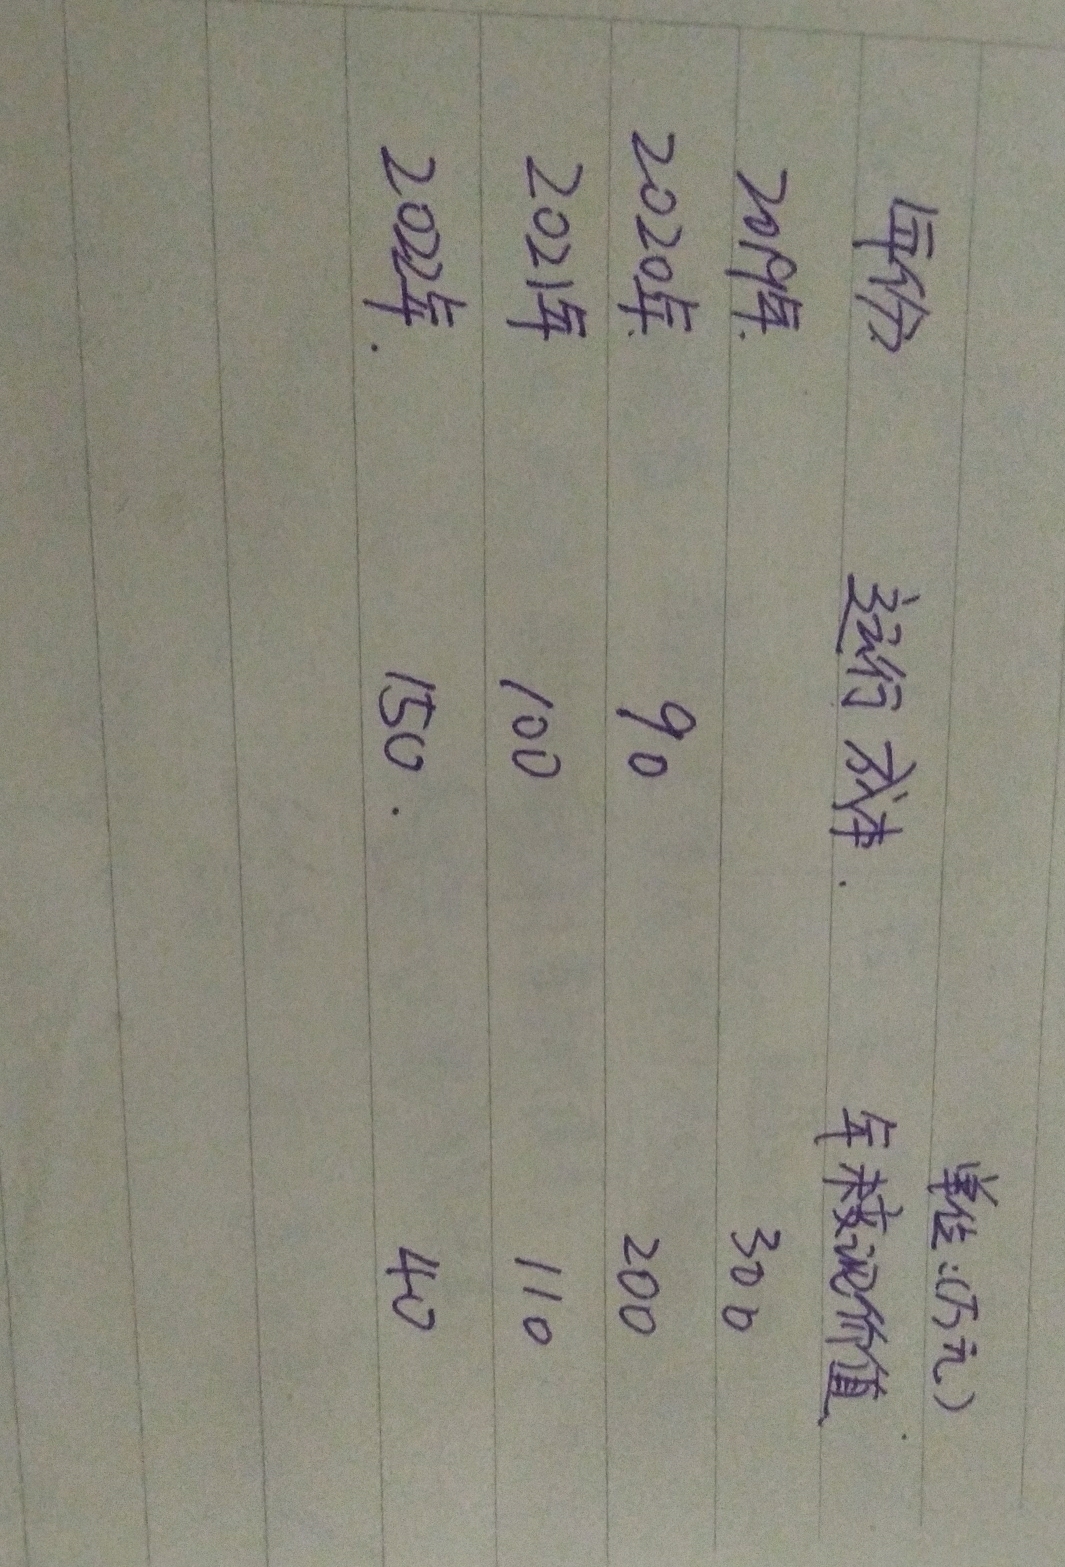 单位:(万元)
年份 运行成本. 年末变现价值.
2019年. 300
2020年. 90 200
2021年 100 110
2022年. 150. 40